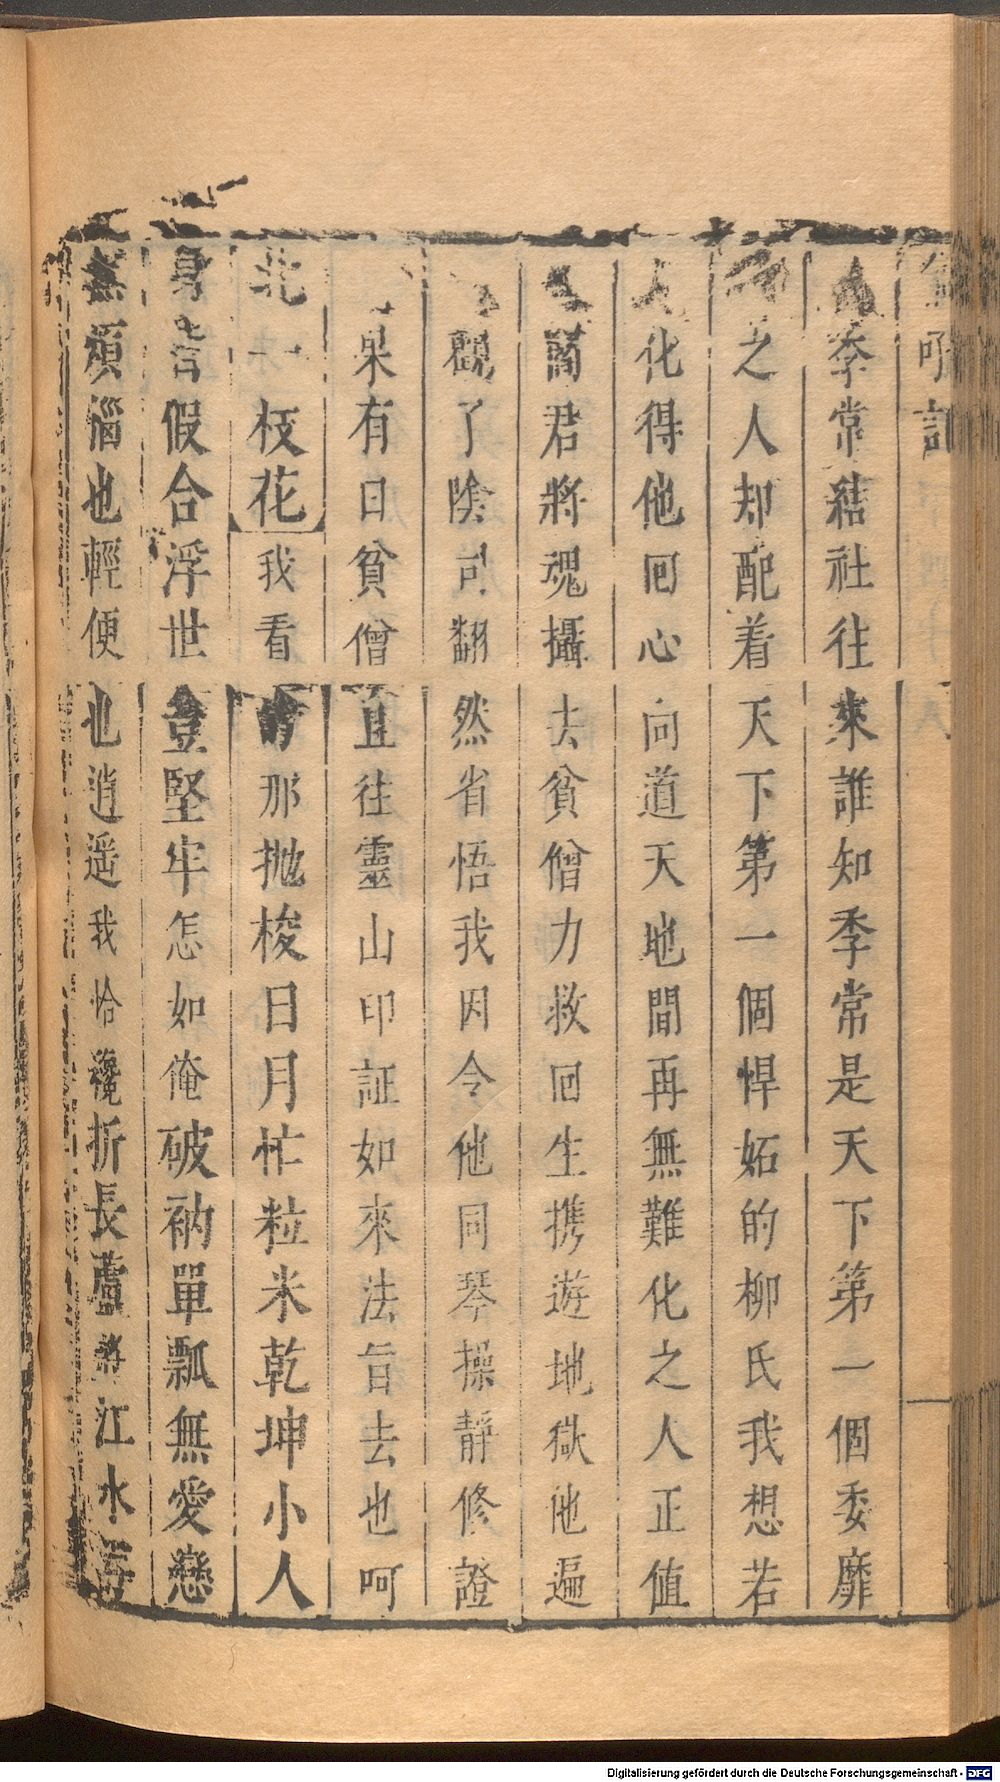 吼記
季常結社往來誰知季常是天下第一個委靡
之人却配着天下第一個悍妬的柳氏我想若
化得他回心向道天地間再無難化之人正值
閻君將魂攝去貧僧力救回生携遊地獄他遍
觀了陰司翻然省悟我因令他同琴操靜修證
果有日貧僧且往靈山印証如來法旨去也呵
北一枝花我看那拋梭日月忙粒米乾坤小人
身若假合浮世豈堅牢怎如俺破衲單瓢無愛戀
無煩惱也輕便也逍遥我恰纔折長蘆將江水
Digitalisierung gefördert durch die Deutsche Forschungsgemeinschaft - DFG